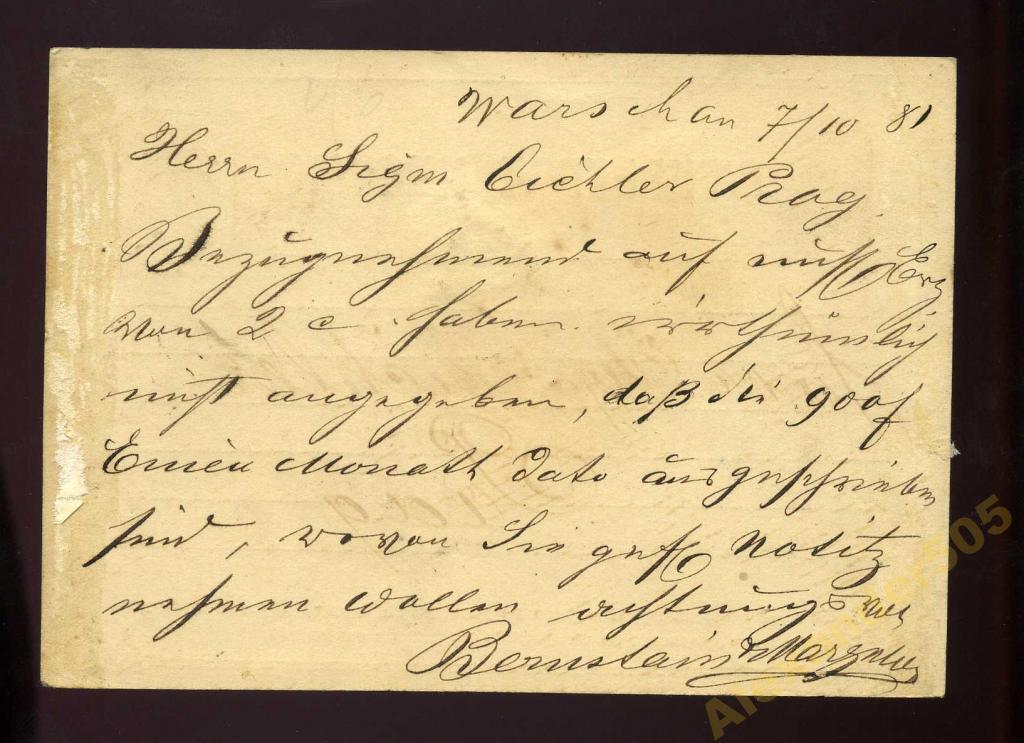 Warschau 7/10 81
Herrn Sigm Eichler Prag.
Bezugnehmend auf
von 2 c. haben irrthümlich
nicht angegeben, daß die 900f
Einen Monath dato ausgeschrieben
sind, wovon Sie gefl Notitz
nehmen wollen achtungsvoll
Bernstein &